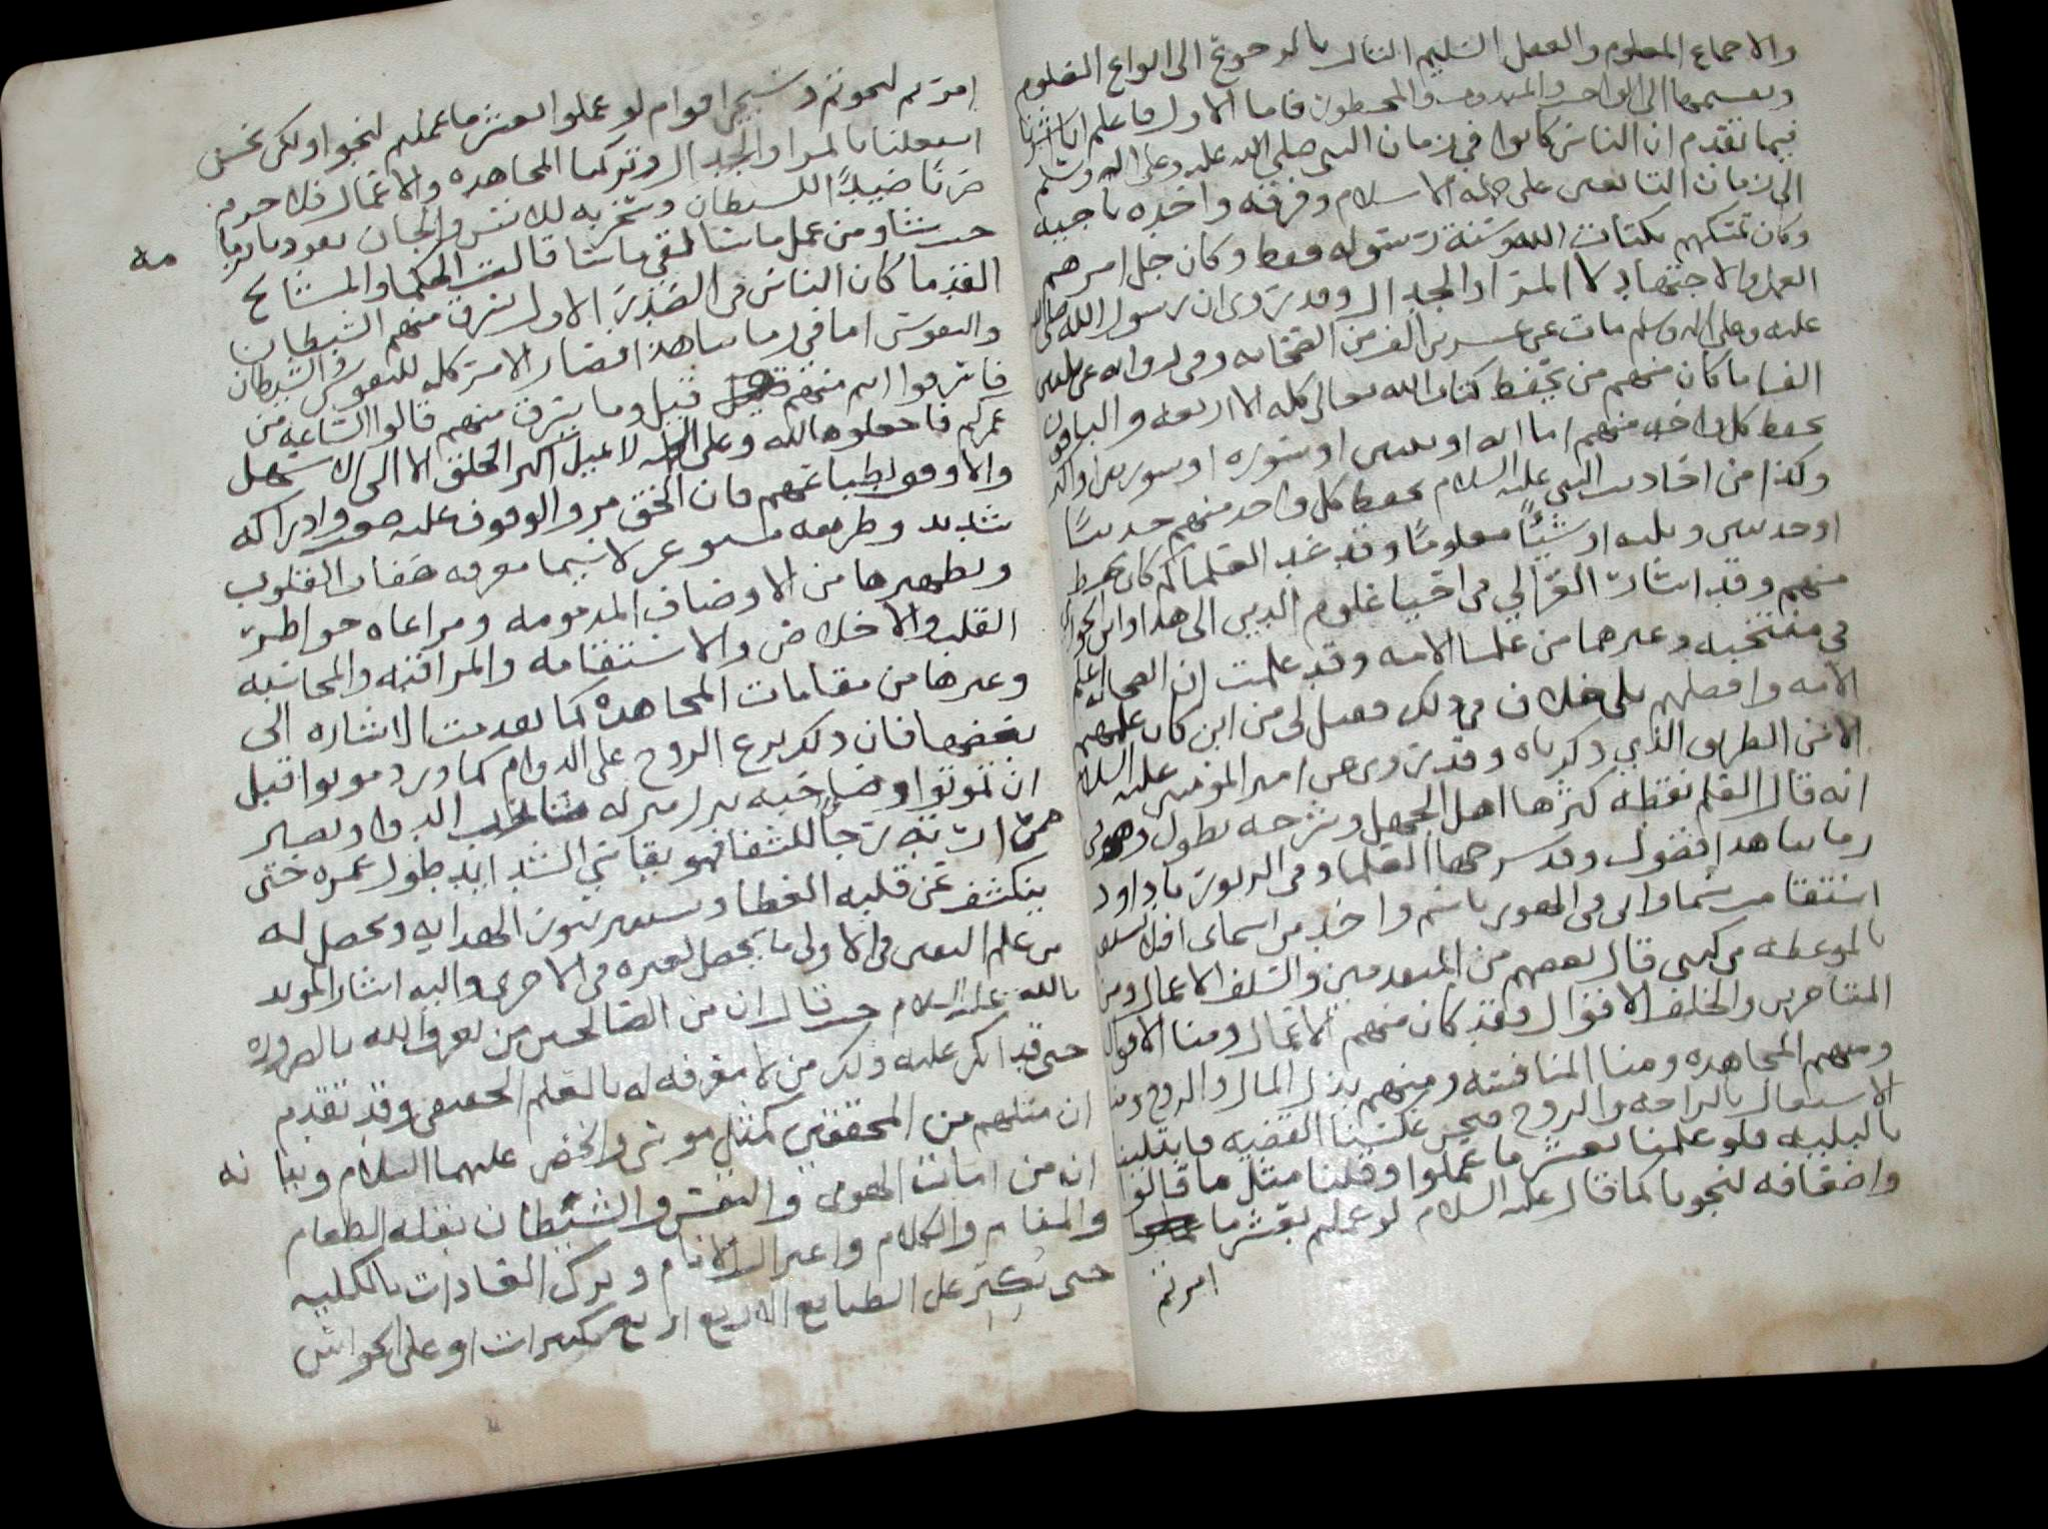 والاجماع المعلوم والعقل السليم الثالث بالرجوع الى انواع العلوم
وتقسيمها الى الواجب والمندوب والمحظور فاما الاول فاعلم انا اشرنا
فيما تقدم ان الناس كانوا في زمان النبي صلى الله عليه وعلى اله وسلم
الى زمان التابعين على جملة الاسلام وفرقه واحده ناجيه
وكان تمسكهم بكتاب الله وسنة رسوله فقط وكان جل امرهم
العمل والاجتهاد لا المرا والجدال وقد روى ان رسول الله صلى الله
عليه وعلى اله وسلم مات عن عشرين الف من الصحابه وفي روايه عن ثلثين
الفا ما كان منهم من يحفظ كتاب الله تعالى كله الا اربعه والباقون
يحفظ كل واحد منهم اما ايه او ثلثين او سوره او سورتين او اكثر
وكذا من احاديث النبي عليه السلام يحفظ كل واحد منهم حديثا
او حديثين وثلثه او شيئا معلوما وقد عد العلما كم كان يحفظ
منهم وقد اشار الغزالي في احيا علوم الدين الى هذا وابن الجوزي
في منتخبه وغيرهما من علما الامه وقد علمت ان الصحابه اعلم
الامه وافضلهم بلى خلاف في ذلك فقيل لي من اين كان علمهم
الا من الطريق الذي ذكرناه وقد روى عن امير المومنين عليه السلام
انه قال العلم نقطه كثرها اهل الجهل وشرحه يطول وهو في
زماننا هذا فضول وقد شرحها العلما وفي الزبور يا داود
بالموعظه من كمي قال بعضهم من المتقدمين والسلف الاعمال ومن
المتاخرين والخلف الاقوال فقد كان منهم الاعمال ومنا الاقوال
ومنهم المجاهده ومنا المنافسه ومنهم بذل المال والروح ومنا
الاشتغال بالراحه والروح فحين عكسنا القضيه فابتلينا
بالبليه فلو علمنا بعشر ما عملوا وقلنا مثل ما قالوا
واضعافه لنجونا كما قال عليه السلام لو عملتم بعشر ما
امرتم
امرتم لنجوتم وسيجي اقوام لو عملوا بعشر ما عملتم لنجوا ولكن نحن
اشتغلنا بالمرا والجدال وتركنا المجاهده والاعمال فلا جرم
صرنا ضيدا للشيطان وسخريه للانس والجان نعوذ بالله
حيث شاومن عمل ماشا لقي ماشا قالت الحكما والمشائخ مه
القدما كان الناس في الصدر الاول يسرق منهم الشيطان
والنفوس اما في زماننا هذا فصار الامر كله للنفوس والشيطان
فاسرقوا انتم منهم قيل وما يسرق منهم قالوا الساعه من
عمركم فاجعلوها لله وعلى الجمله لا يميل اكثر الخلق الا الى الاسهل
والاوفق لطباعهم فان الحق مر والوقوف عليه صعب وادراكه
شديد وطريقه مستوعر لا سيما معرفه صفات القلوب
وتطهيرها من الاوصاف المذمومه ومراعاه خواطر
القلب والاخلاص والاستقامه والمراقبه والمحاسبه
وغيرها من مقامات المجاهده كما تقدمت الاشاره الى
بعضها فان ذلك نزع الروح على الدوام كما ورد موتوا قبل
ان تموتوا وصاحبه ينزل منزله شارب الدوا ويصبر
على مرارته رجا للشفا فهو يقاسي الشدايد طول عمره حتى
ينكشف عن قلبه الغطا ويستنير بنور الهدايه ويحصل له
من علم اليقين في الاولى ما يحصل لغيره في الاخرى واليه اشار المويد
بالله عليه السلام حيث قال ان من الصالحين من يعرف الله بالضروره
حتى قد انكر عليه ذلك من لا معرفه له بالعلم الحقيقي وقد تقدم
ان مثلهم من المحققين كمثل موسى والخضر عليهما السلام وبيا نه
ان من امات الهوى والنفس والشيطان بقله الطعام
والمنام والكلام واعتزال الانام وترك العادات بالكليه
حتى يكبر على الطبايع الاربع اربع تكبيرات او على الحواس